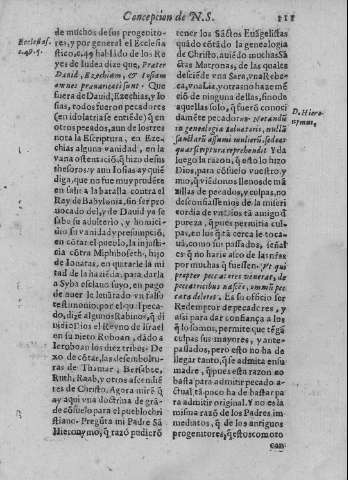 Concepcion de N.S.
111
Ecclesias.
c.49.5.
de muchos de sus progenito-
res, y por general el Ecclesia
stico, c.49 hablādo de los Re
yes de Iudea dize que, Præter
Dauid, Ezechiam, & Iosiam
omnes peccauerunt. Que
fuera de Dauid, Ezechias, y Io
sias, todos fueron pecadores
(en idolatria se entiēde) q̄ en
otros pecados, aun de los tres
nota la Escriptura, en Eze-
chias alguna vanidad, en la
vana ostentaciō, q̄ hizo de sus
thesoros: y aun Iosias ay quiē
diga, que no fue muy prudēte
en salir a la batalla contra el
Rey de Babylonia, sin ser pro
uocado del, y de Dauid ya se
sabe su adulterio, y homici-
dio su vanidad y presumpciō,
en cōtar el pueblo, la injusti-
cia cōtra Miphiboseth, hijo
de Ionatas, en quitarle la mi
tad de la haziēda, para darla
a Syba esclauo suyo, en pago
de auer le leuātado vn falso
testimonio, por el qual peca-
do, dizē algunos Rabinos, q̄ di
uidio Dios el Reyno de Israel
en su nieto Roboan, dādo a
Ieroboan los diez tribos. De
xo de cōtar, las desembolturas
de Thamar, Bersabee,
Ruth, Raab, y otros ascendiē
tes de Christo. Agora miré q̄
ay aqui vna doctrina de grā-
de cōsuelo para el pueblo chri
stiano. Pregūta mi Padre Sā
Hieronymo, q̄ razō pudierō
tener los Sāctos Euāgelistas
quādo cōtādo la genealogia
de Christo, auiēdo muchas Sā
ctas Matronas, de las quales
desciēde vna Sara, vna Rebec-
ca, vna Lia, y otras no haze mē
ciō de ninguna dellas, sino de
aquellas solo, q̄ fuerō conoci
damēte pecadoras. Notandū
in genealogia saluatoris, nullā
sanctarū assumi mulierū, sed eas
quas scriptura reprehendit. Y da
luego la razon, q̄ esto lo hizo
Dios, para cōsuelo vuestro, y
mio, q̄ viēdonos llenos de mā
zillas de pecados, y culpas, no
desconfiassemos de la miseri
cordia de vn Dios tā amigo d̄
pureza, q̄ pues permitia cul-
pas, en los q̄ tā cerca le toca-
uā, como sus passados, señal
es q̄ no haria asco de las n̄ras
por muchas q̄ fuessen. Vt qui
propter peccatores venerat, de
peccatricibus nascēs, omniū pec
cata deleret. Es su officio ser
Redemptor de pecadores, y
assi para dar confiança a los
q̄ lo somos, permite que tēgā
culpas sus mayores, y ante-
passados, pero esto no ha de
llegar tanto, q̄ se admita en su
madre, q̄ pues esta razon no
basta para admitir pecado a-
ctual, tāpoco ha de bastar pa
ra admitir original. Y no es la
misma razō de los Padres im
mediatos, q̄ de los antiguos
progenitores, q̄ estos como
can-
D. Hiero
nymus.